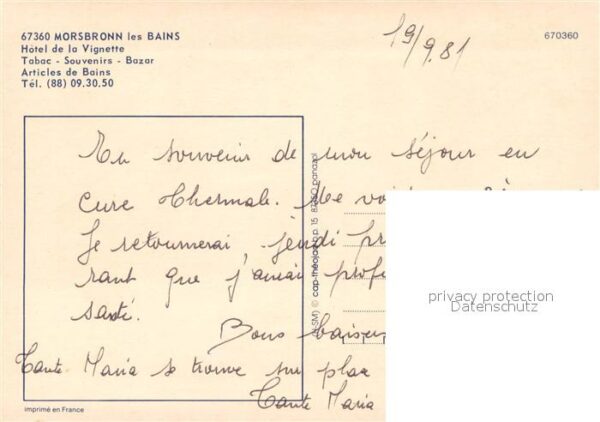 67360 MORSBRONN les BAINS
Hôtel de la Vignette
Tabac - Souvenirs - Bazar
Articles de Bains
Tél. (88) 09.30.50
19/9.81
670360
En souvenir de mon séjour en
cure thermale. Me
Je retournerai, jeudi
que j'aurai
santé.
Bons baisers
Tante Maria se trouve sur place
Tante Maria
cap-théojac
privacy protection
Datenschutz
imprimé en France